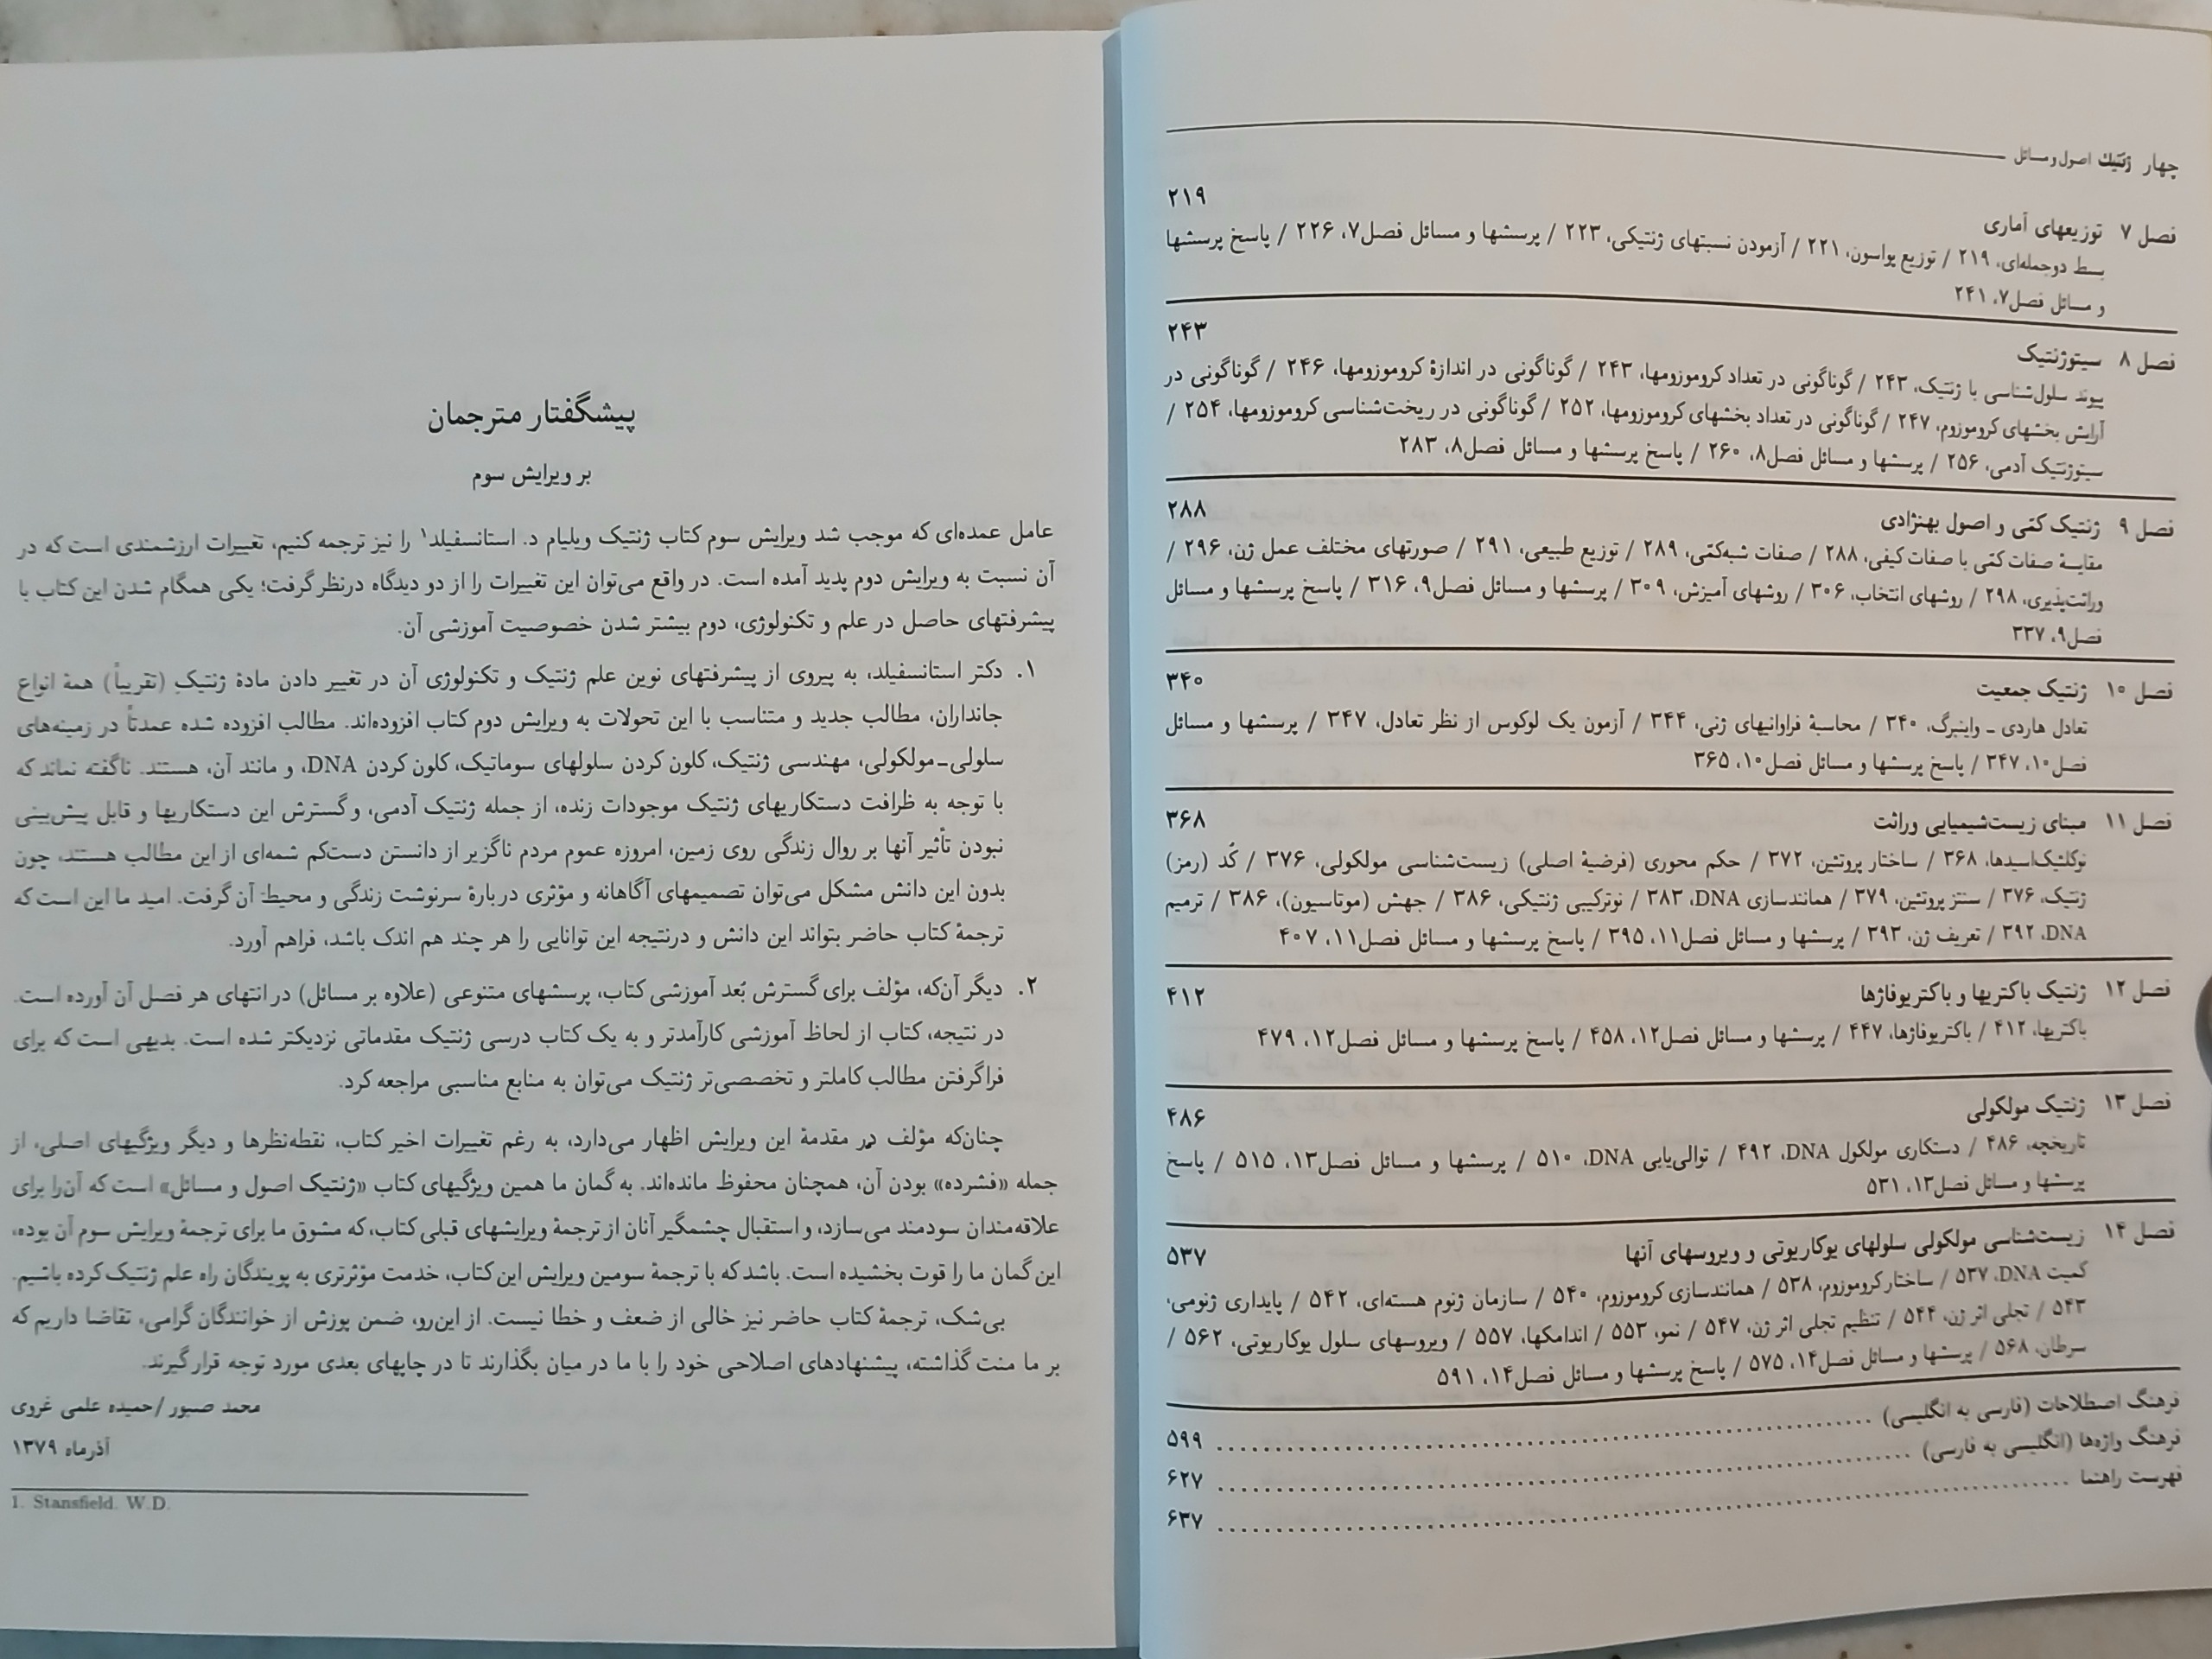 چهار ژنتیک اصول و مسائل
فصل ۷ توزیعهای آماری ۲۱۹
بسط دوجمله‌ای، ۲۱۹ / توزیع پواسون، ۲۲۱ / آزمودن نسبتهای ژنتیکی، ۲۲۳ / پرسشها و مسائل فصل۷، ۲۲۶ / پاسخ پرسشها
و مسائل فصل۷، ۲۴۱
فصل ۸ سیتوژنتیک ۲۴۳
پیوند سلول‌شناسی با ژنتیک، ۲۴۳ / گوناگونی در تعداد کروموزومها، ۲۴۳ / گوناگونی در اندازهٔ کروموزومها، ۲۴۶ / گوناگونی در
آرایش بخشهای کروموزوم، ۲۴۷ / گوناگونی در تعداد بخشهای کروموزومها، ۲۵۲ / گوناگونی در ریخت‌شناسی کروموزومها، ۲۵۴ /
سیتوژنتیک آدمی، ۲۵۶ / پرسشها و مسائل فصل۸، ۲۶۰ / پاسخ پرسشها و مسائل فصل۸، ۲۸۳
فصل ۹ ژنتیک کمّی و اصول بهنژادی ۲۸۸
مقایسهٔ صفات کمّی با صفات کیفی، ۲۸۸ / صفات شبه‌کمّی، ۲۸۹ / توزیع طبیعی، ۲۹۱ / صورتهای مختلف عمل ژن، ۲۹۶ /
وراثت‌پذیری، ۲۹۸ / روشهای انتخاب، ۳۰۶ / روشهای آمیزش، ۳۰۹ / پرسشها و مسائل فصل۹، ۳۱۶ / پاسخ پرسشها و مسائل
فصل۹، ۳۳۷
فصل ۱۰ ژنتیک جمعیت ۳۴۰
تعادل هاردی ـ واینبرگ، ۳۴۰ / محاسبهٔ فراوانیهای ژنی، ۳۴۴ / آزمون یک لوکوس از نظر تعادل، ۳۴۷ / پرسشها و مسائل
فصل۱۰، ۳۴۷ / پاسخ پرسشها و مسائل فصل۱۰، ۳۶۵
فصل ۱۱ مبنای زیست‌شیمیایی وراثت ۳۶۸
نوکلئیک‌اسیدها، ۳۶۸ / ساختار پروتئین، ۳۷۲ / حکم محوری (فرضیهٔ اصلی) زیست‌شناسی مولکولی، ۳۷۶ / کُد (رمز)
ژنتیک، ۳۷۶ / سنتز پروتئین، ۳۷۹ / همانندسازی DNA، ۳۸۳ / نوترکیبی ژنتیکی، ۳۸۶ / جهش (موتاسیون)، ۳۸۶ / ترمیم
DNA، ۳۹۲ / تعریف ژن، ۳۹۳ / پرسشها و مسائل فصل۱۱، ۳۹۵ / پاسخ پرسشها و مسائل فصل۱۱، ۴۰۷
فصل ۱۲ ژنتیک باکتریها و باکتریوفاژها ۴۱۲
باکتریها، ۴۱۲ / باکتریوفاژها، ۴۴۷ / پرسشها و مسائل فصل۱۲، ۴۵۸ / پاسخ پرسشها و مسائل فصل۱۲، ۴۷۹
فصل ۱۳ ژنتیک مولکولی ۴۸۶
تاریخچه، ۴۸۶ / دستکاری مولکول DNA، ۴۹۲ / توالی‌یابی DNA، ۵۱۰ / پرسشها و مسائل فصل۱۳، ۵۱۵ / پاسخ
پرسشها و مسائل فصل۱۳، ۵۳۱
فصل ۱۴ زیست‌شناسی مولکولی سلولهای یوکاریوتی و ویروسهای آنها ۵۳۷
کمیت DNA، ۵۳۷ / ساختار کروموزوم، ۵۳۸ / همانندسازی کروموزوم، ۵۴۰ / سازمان ژنوم هسته‌ای، ۵۴۲ / پایداری ژنومی،
۵۴۳ / تجلی اثر ژن، ۵۴۴ / تنظیم تجلی اثر ژن، ۵۴۷ / نمو، ۵۵۳ / اندامکها، ۵۵۷ / ویروسهای سلول یوکاریوتی، ۵۶۲ /
سرطان، ۵۶۸ / پرسشها و مسائل فصل۱۴، ۵۷۵ / پاسخ پرسشها و مسائل فصل۱۴، ۵۹۱
فرهنگ اصطلاحات (فارسی به انگلیسی) ........ ۵۹۹
فرهنگ واژه‌ها (انگلیسی به فارسی) ........ ۶۲۷
فهرست راهنما ........ ۶۳۷
پیشگفتار مترجمان
بر ویرایش سوم
عامل عمده‌ای که موجب شد ویرایش سوم کتاب ژنتیک ویلیام د. استانسفیلد۱ را نیز ترجمه کنیم، تغییرات ارزشمندی است که در
آن نسبت به ویرایش دوم پدید آمده است. در واقع می‌توان این تغییرات را از دو دیدگاه درنظر گرفت؛ یکی همگام شدن این کتاب با
پیشرفتهای حاصل در علم و تکنولوژی، دوم بیشتر شدن خصوصیت آموزشی آن.
۱. دکتر استانسفیلد، به پیروی از پیشرفتهای نوین علم ژنتیک و تکنولوژی آن در تغییر دادن مادهٔ ژنتیکِ (تقریباً) همهٔ انواع
جانداران، مطالب جدید و متناسب با این تحولات به ویرایش دوم کتاب افزوده‌اند. مطالب افزوده شده عمدتاً در زمینه‌های
سلولی‌ـ‌مولکولی، مهندسی ژنتیک، کلون کردن سلولهای سوماتیک، کلون کردن DNA، و مانند آن، هستند. ناگفته نماند که
با توجه به ظرافت دستکاریهای ژنتیک موجودات زنده، از جمله ژنتیک آدمی، و گسترش این دستکاریها و قابل پیش‌بینی
نبودن تأثیر آنها بر روال زندگی روی زمین، امروزه عموم مردم ناگزیر از دانستن دست‌کم شمه‌ای از این مطالب هستند، چون
بدون این دانش مشکل می‌توان تصمیمهای آگاهانه و مؤثری دربارهٔ سرنوشت زندگی و محیط آن گرفت. امید ما این است که
ترجمهٔ کتاب حاضر بتواند این دانش و درنتیجه این توانایی را هر چند هم اندک باشد، فراهم آورد.
۲. دیگر آن‌که، مؤلف برای گسترش بُعد آموزشی کتاب، پرسشهای متنوعی (علاوه بر مسائل) در انتهای هر فصل آن آورده است.
در نتیجه، کتاب از لحاظ آموزشی کارآمدتر و به یک کتاب درسی ژنتیک مقدماتی نزدیکتر شده است. بدیهی است که برای
فراگرفتن مطالب کاملتر و تخصصی‌تر ژنتیک می‌توان به منابع مناسبی مراجعه کرد.
چنان‌که مؤلف در مقدمهٔ این ویرایش اظهار می‌دارد، به رغم تغییرات اخیر کتاب، نقطه‌نظرها و دیگر ویژگیهای اصلی، از
جمله «فشرده» بودن آن، همچنان محفوظ مانده‌اند. به گمان ما همین ویژگیهای کتاب «ژنتیک اصول و مسائل» است که آن‌را برای
علاقه‌مندان سودمند می‌سازد، و استقبال چشمگیر آنان از ترجمهٔ ویرایشهای قبلی کتاب، که مشوق ما برای ترجمهٔ ویرایش سوم آن بوده،
این گمان ما را قوت بخشیده است. باشد که با ترجمهٔ سومین ویرایش این کتاب، خدمت مؤثرتری به پویندگان راه علم ژنتیک کرده باشیم.
بی‌شک، ترجمهٔ کتاب حاضر نیز خالی از ضعف و خطا نیست. از این‌رو، ضمن پوزش از خوانندگان گرامی، تقاضا داریم که
بر ما منت گذاشته، پیشنهادهای اصلاحی خود را با ما در میان بگذارند تا در چاپهای بعدی مورد توجه قرار گیرند.
محمد صبور / حمیده علمی غروی
آذرماه ۱۳۷۹
1. Stansfield. W.D.